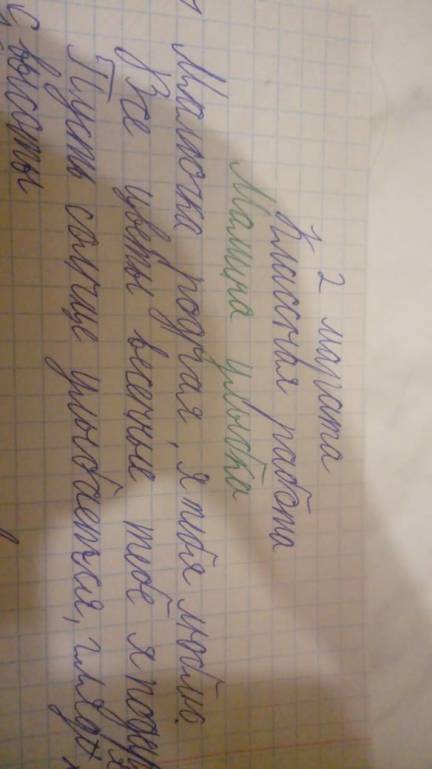 2 марта
Классная работа
Мамина улыбка
Мамочка родная, я тебя люблю.
Все цветы весенние тебе я подар
Пусть солнце улыбается, глядя
с высоты